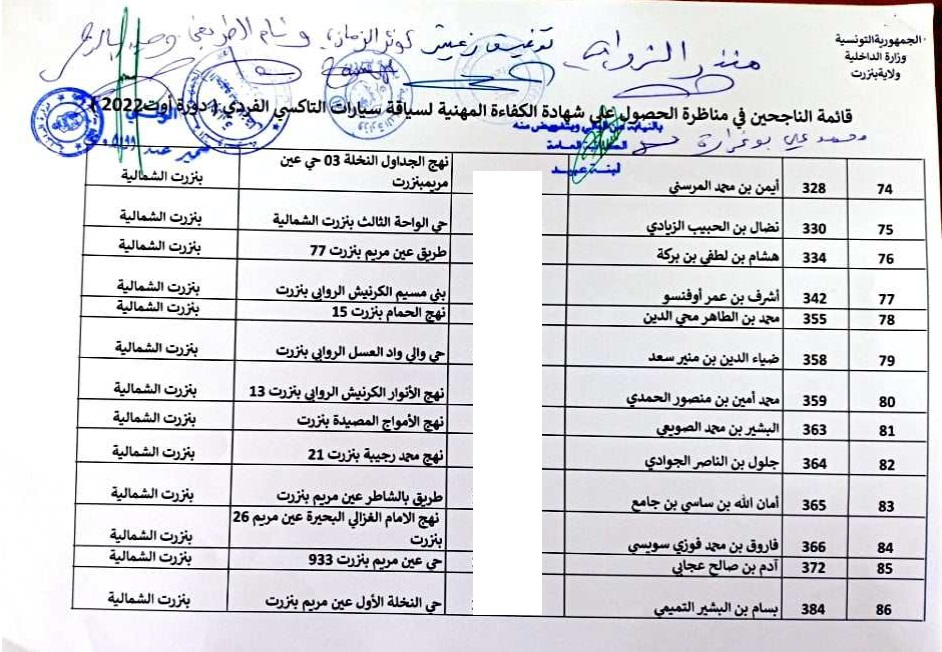 الجمهورية التونسية
وزارة الداخلية
ولاية بنزرت
منذر الزواية توفيق زعيتر كوثر الزمازي وسام الطريفي وحيد
قائمة الناجحين في مناظرة الحصول على شهادة الكفاءة المهنية لسياقة سيارات التاكسي الفردي ( دورة أوت 2022 )
محمد علي بوغزارة
بالنيابة عن الوالي وبتفويض منه
لبنة عبيد
سمير عبد
74 328 أيمن بن محمد المرسني نهج الجداول النخلة 03 حي عين مريمبنزرت بنزرت الشمالية
75 330 نضال بن الحبيب الزيادي حي الواحة الثالث بنزرت الشمالية بنزرت الشمالية
76 334 هشام بن لطفي بن بركة طريق عين مريم بنزرت 77 بنزرت الشمالية
77 342 أشرف بن عمر أوفنسو بني مسيم الكرنيش الروابي بنزرت بنزرت الشمالية
78 355 محمد بن الطاهر محي الدين نهج الحمام بنزرت 15 بنزرت الشمالية
79 358 ضياء الدين بن منير سعد حي والي واد العسل الروابي بنزرت بنزرت الشمالية
80 359 محمد أمين بن منصور الحمدي نهج الأنوار الكرنيش الروابي بنزرت 13 بنزرت الشمالية
81 363 البشير بن محمد الصويعي نهج الأمواج المصيدة بنزرت بنزرت الشمالية
82 364 جلول بن الناصر الجوادي نهج محمد رجيبة بنزرت 21 بنزرت الشمالية
83 365 أمان الله بن ساسي بن جامع طريق بالشاطر عين مريم بنزرت بنزرت الشمالية
84 366 فاروق بن محمد فوزي سويسي نهج الامام الغزالي البحيرة عين مريم 26 بنزرت بنزرت الشمالية
85 372 آدم بن صالح عجابي حي عين مريم بنزرت 933 بنزرت الشمالية
86 384 بسام بن البشير التميمي حي النخلة الأول عين مريم بنزرت بنزرت الشمالية